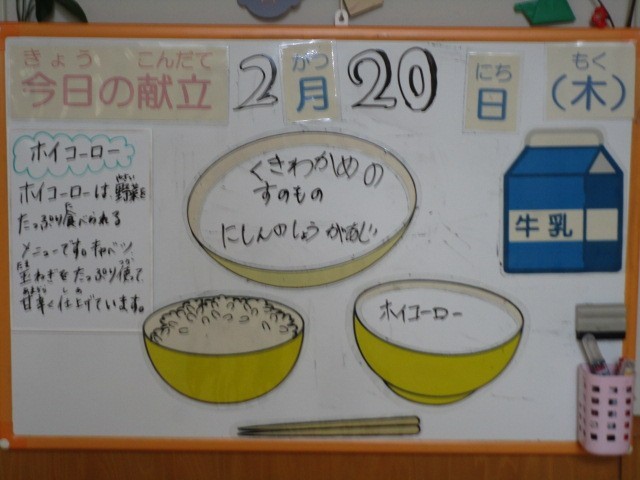 きょう こんだて がつ にち もく
今日の献立 2月20日(木)
ホイコーロー
ホイコーローは、野菜を
たっぷり食べられる
メニューです。キャベツ、
玉ねぎをたっぷり使って
甘辛く仕上げています。
くきわかめの
すのもの
にしんのしょうがあじ
ホイコーロー
牛乳